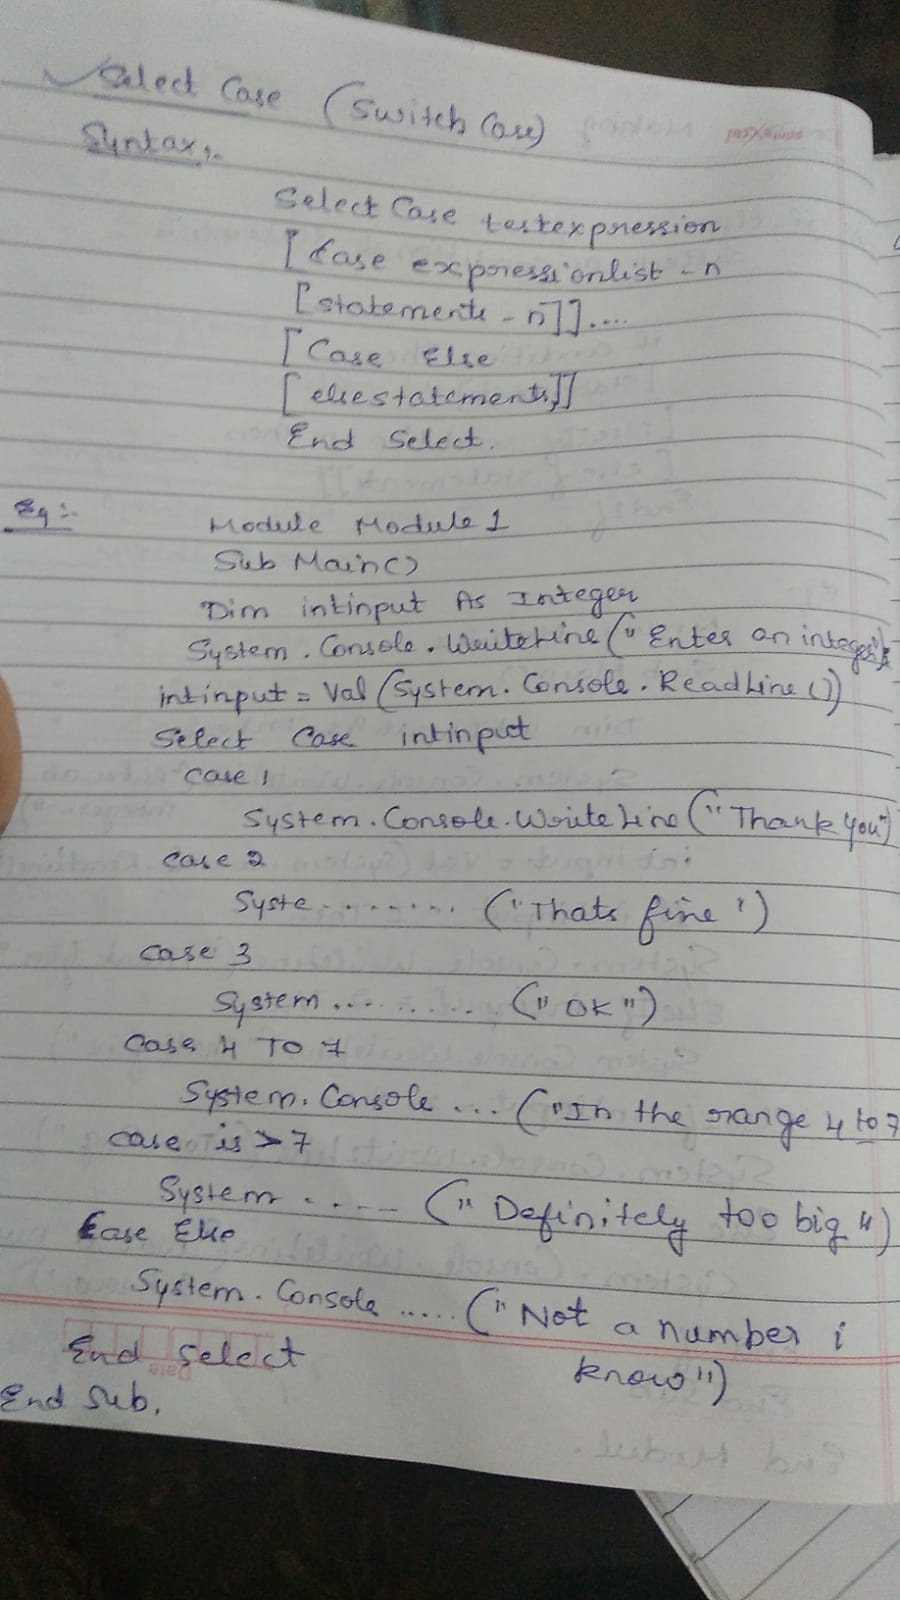 Select Case (Switch Case)
Syntax:-
Select Case testexpression
[Case expressionlist-n
[statements-n]]....
[Case Else
[elsestatements]]
End Select.
Eg:-
Module Module 1
Sub Main()
Dim intinput As Integer
System.Console.WriteLine("Enter an integer");
intinput = Val(System.Console.ReadLine())
Select Case intinput
case 1
System.Console.WriteLine("Thank You")
Case 2
Syste........ ("Thats fine")
Case 3
System......... ("OK")
Case 4 TO 7
System.Console ... ("In the range 4 to 7
case is > 7
System ..... ("Definitely too big")
Case Else
System.Console ..... ("Not a number i
know")
End Select
End Sub.